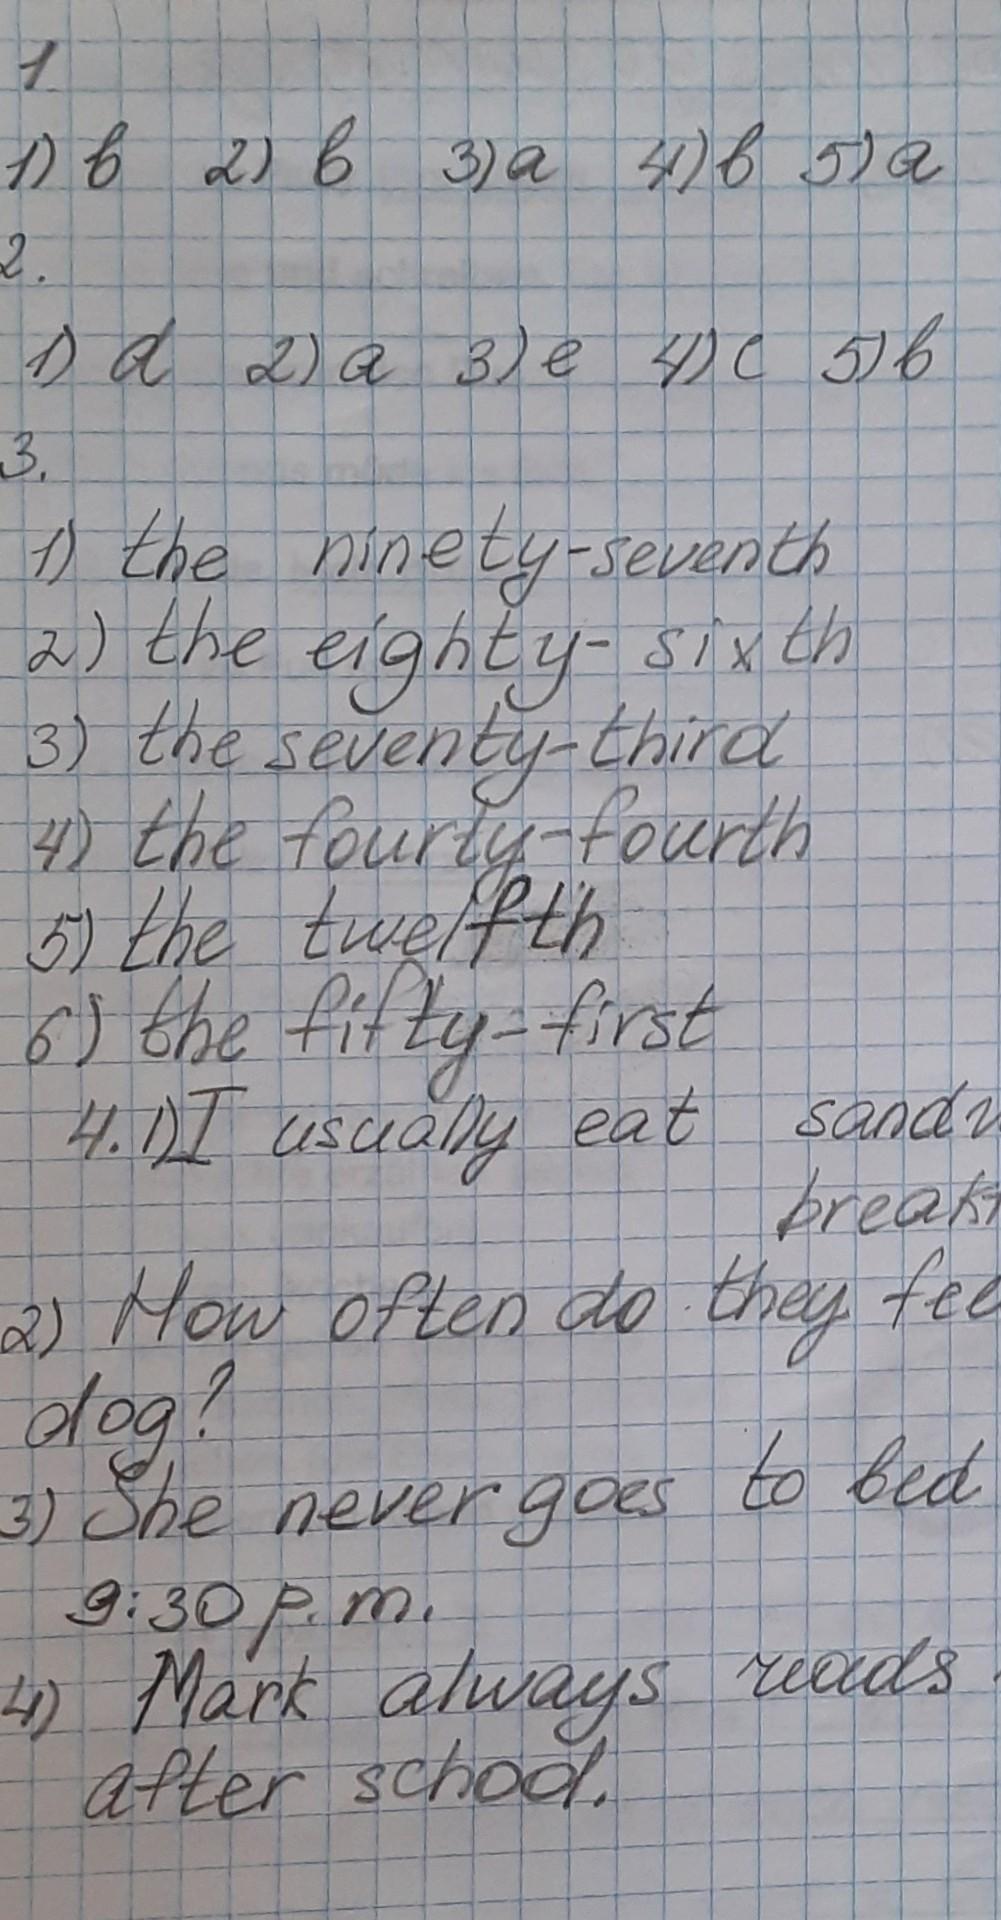 1
1) b 2) b 3) a 4) b 5) a
2.
1) d 2) a 3) e 4) c 5) b
3.
1) the ninety-seventh
2) the eighty-sixth
3) the seventy-third
4) the fourty-fourth
5) the twelfth
6) the fifty-first
4. 1) I usually eat
2) How often do they
dog?
3) She never goes to bed
9:30 p.m.
4) Mark always reads
after school.